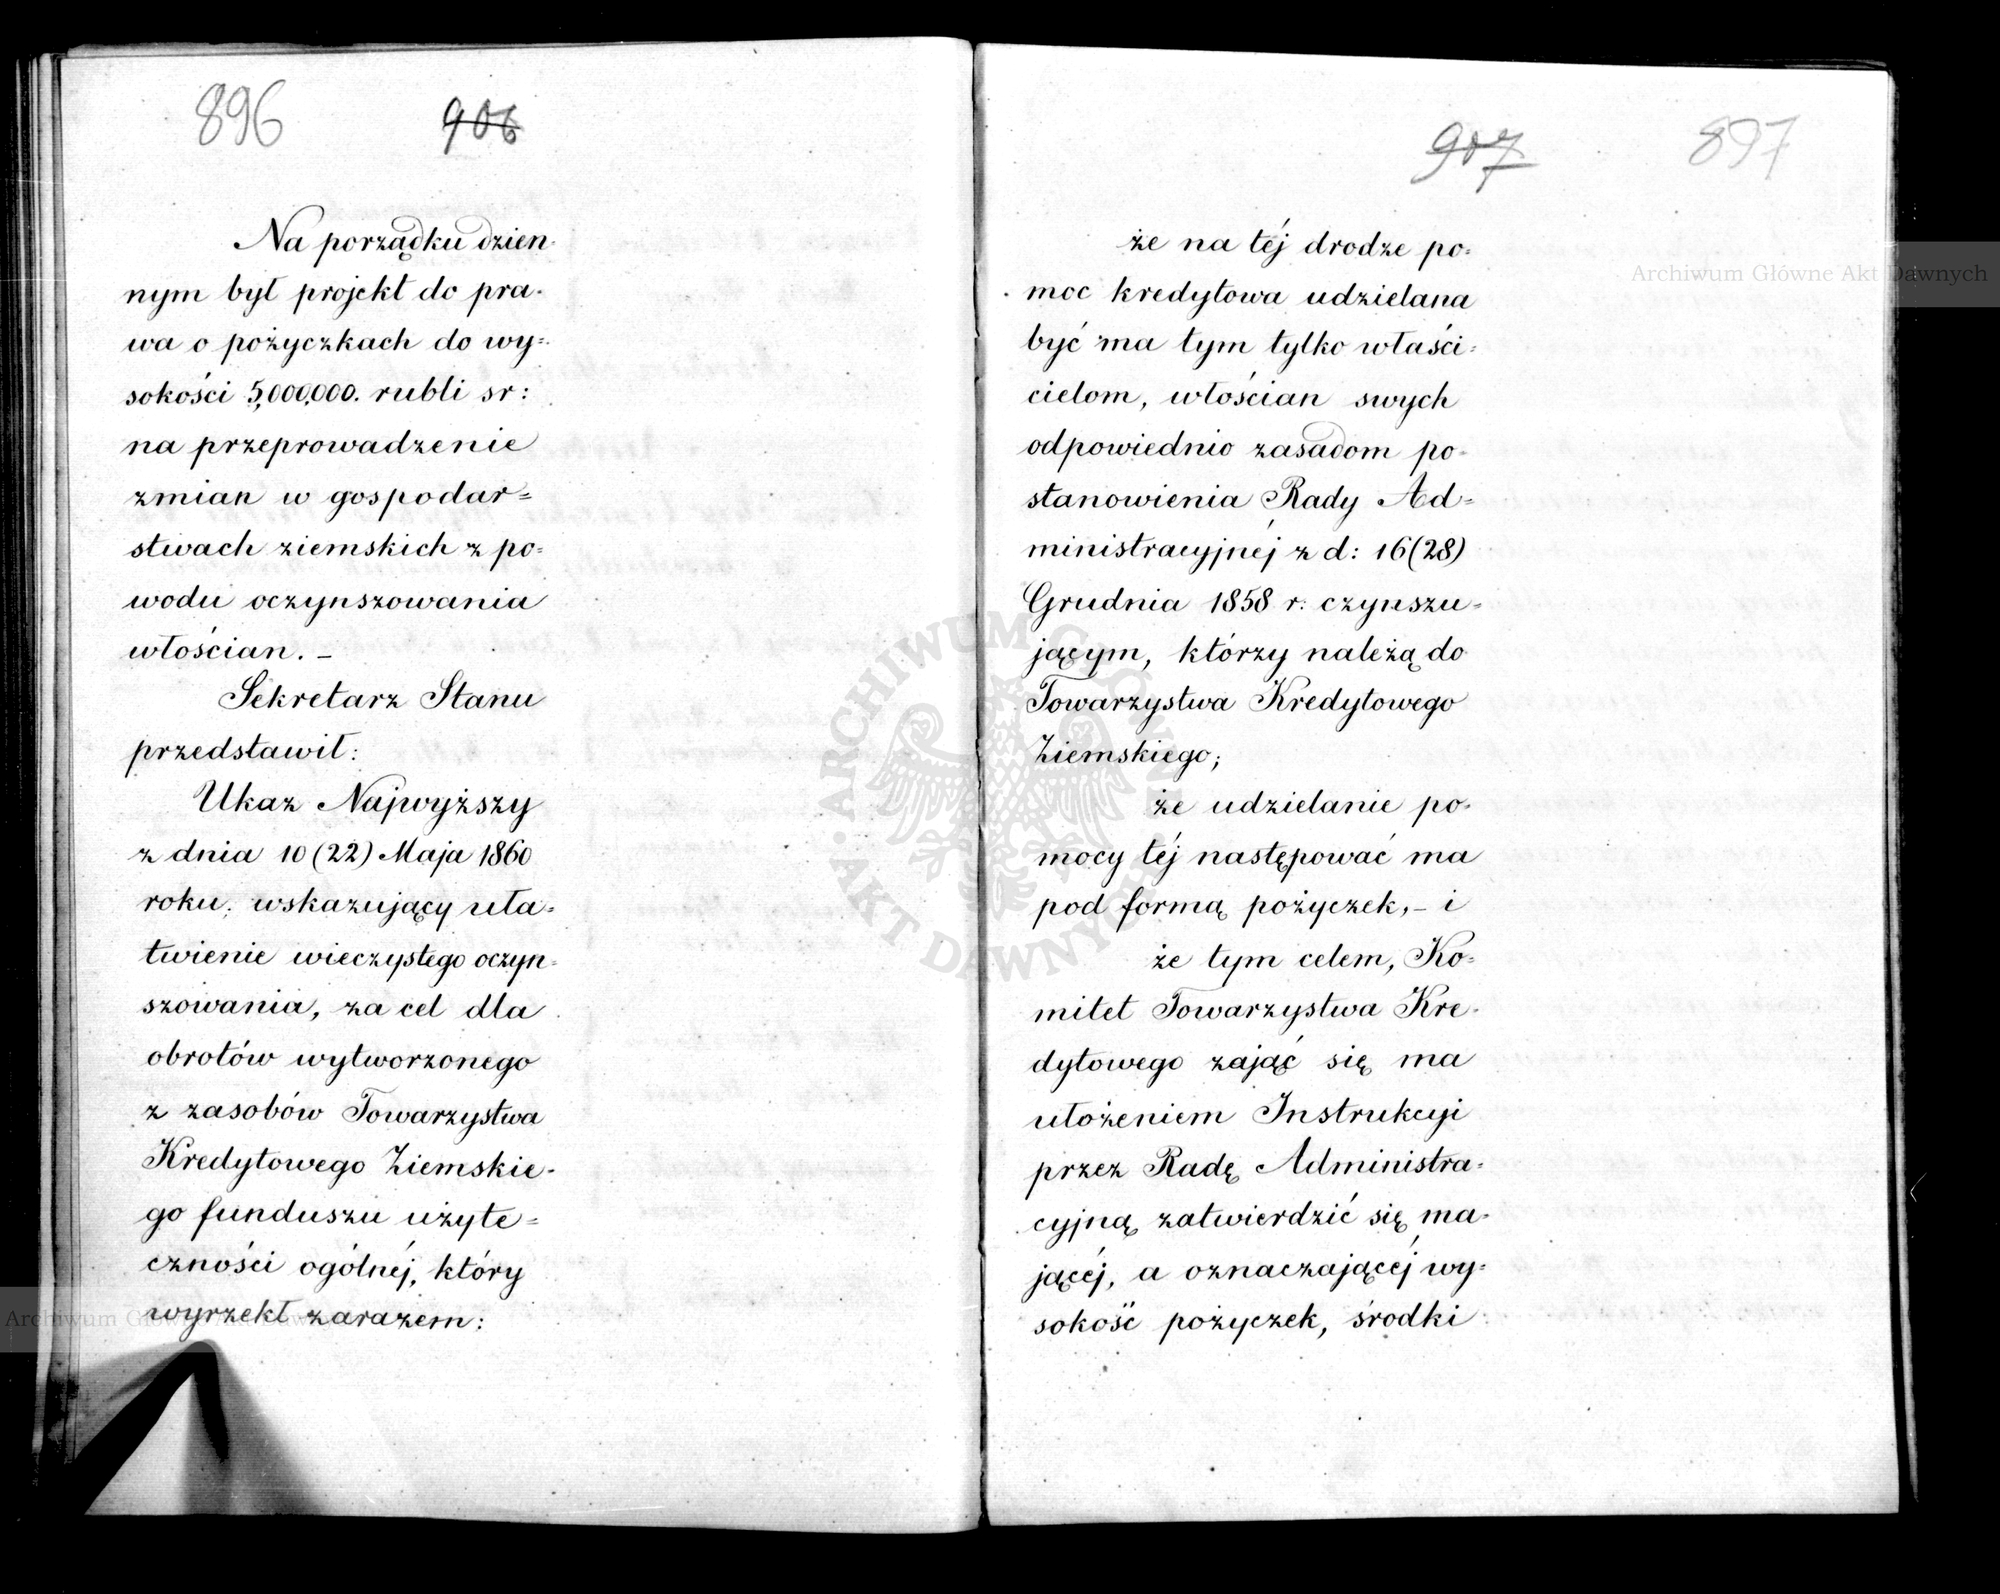 896 906
Na porządku dzien-
nym był projekt do pra-
wa o pożyczkach do wy=
sokości 5,000,000. rubli sr:
na przeprowadzenie
zmian w gospodar=
stwach ziemskich z po=
wodu oczynszowania
włościan. –
Sekretarz Stanu
przedstawił:
Ukaz Najwyższy
z dnia 10 (22) Maja 1860
roku, wskazujący uła=
twienie wieczystego oczyn=
szowania, za cel dla
obrotów wytworzonego
z zasobów Towarzystwa
Kredytowego Ziemskie-
go funduszu użyte=
czności ogólnéj, który
wyrzekł zarazem:
907 897
że na téj drodze po=
moc kredytowa udzielana
być ma tym tylko właści=
cielom, włościan swych
odpowiednio zasadom po-
stanowienia Rady Ad=
ministracyjnéj z d: 16 (28)
Grudnia 1858 r: czynszu=
jącym, którzy należą do
Towarzystwa Kredytowego
Ziemskiego;
że udzielanie po=
mocy téj następować ma
pod formą pożyczek, – i
że tym celem, Ko=
mitet Towarzystwa Kre-
dytowego zająć się ma
ułożeniem Instrukcyi
przez Radę Administra=
cyjną zatwierdzić się ma=
jącéj, a oznaczającéj wy=
sokość pożyczek, środki
Archiwum Główne Akt Dawnych
Archiwum Główne Akt Dawnych
ARCHIWUM GŁÓWNE AKT DAWNYCH